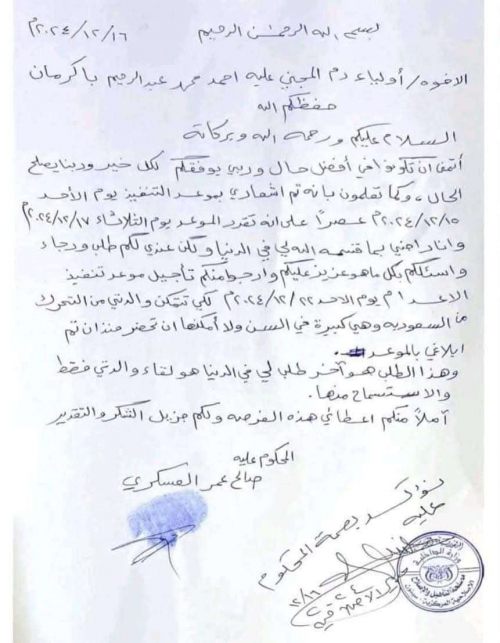 بسم الله الرحمن الرحيم ٢٠٢٤/١٢/١٦م
الاخوه / أولياء دم المجني عليه احمد محمد عبدالرحيم باكرمان
حفظكم الله
السلام عليكم ورحمة الله وبركاتة
أتمنى ان تكونوا في أفضل حال وربي يوفقكم لكل خير وربنا يصلح
الحال ، وكما تعلمون بانه تم اشعاري بموعد التنفيذ يوم الأحد
٢٠٢٤/١٢/١٥م عصراً على انه تقرر الموعد يوم الثلاثاء ٢٠٢٤/١٢/١٧م
وانا راضي بما قسمه الله لي في الدنيا ولكن عندي لكم طلب ورجاء
واسئلكم بكل ماهو عزيز عليكم وارجوا منكم تأجيل موعد تنفيذ
الاعدام يوم الاحد ٢٠٢٤/١٢/٢٢م لكي تتمكن والدتي من التحرك
من السعوديه وهي كبيرة في السن ولا أمكنها ان تحضر منذ ان تم
ابلاغي بالموعد.
وهذا الطلب هو آخر طلب لي في الدنيا هو لقاء والدتي فقط
والاستسماح منها.
آملاً منكم اعطائي هذه الفرصه ولكم جزيل الشكر والتقدير
المحكوم عليه
صالح عمر العسكري
نؤكد بصمة المحكوم
عليه
١٢/١٦
وزارة الداخلية
مصلحة التأهيل والإصلاح